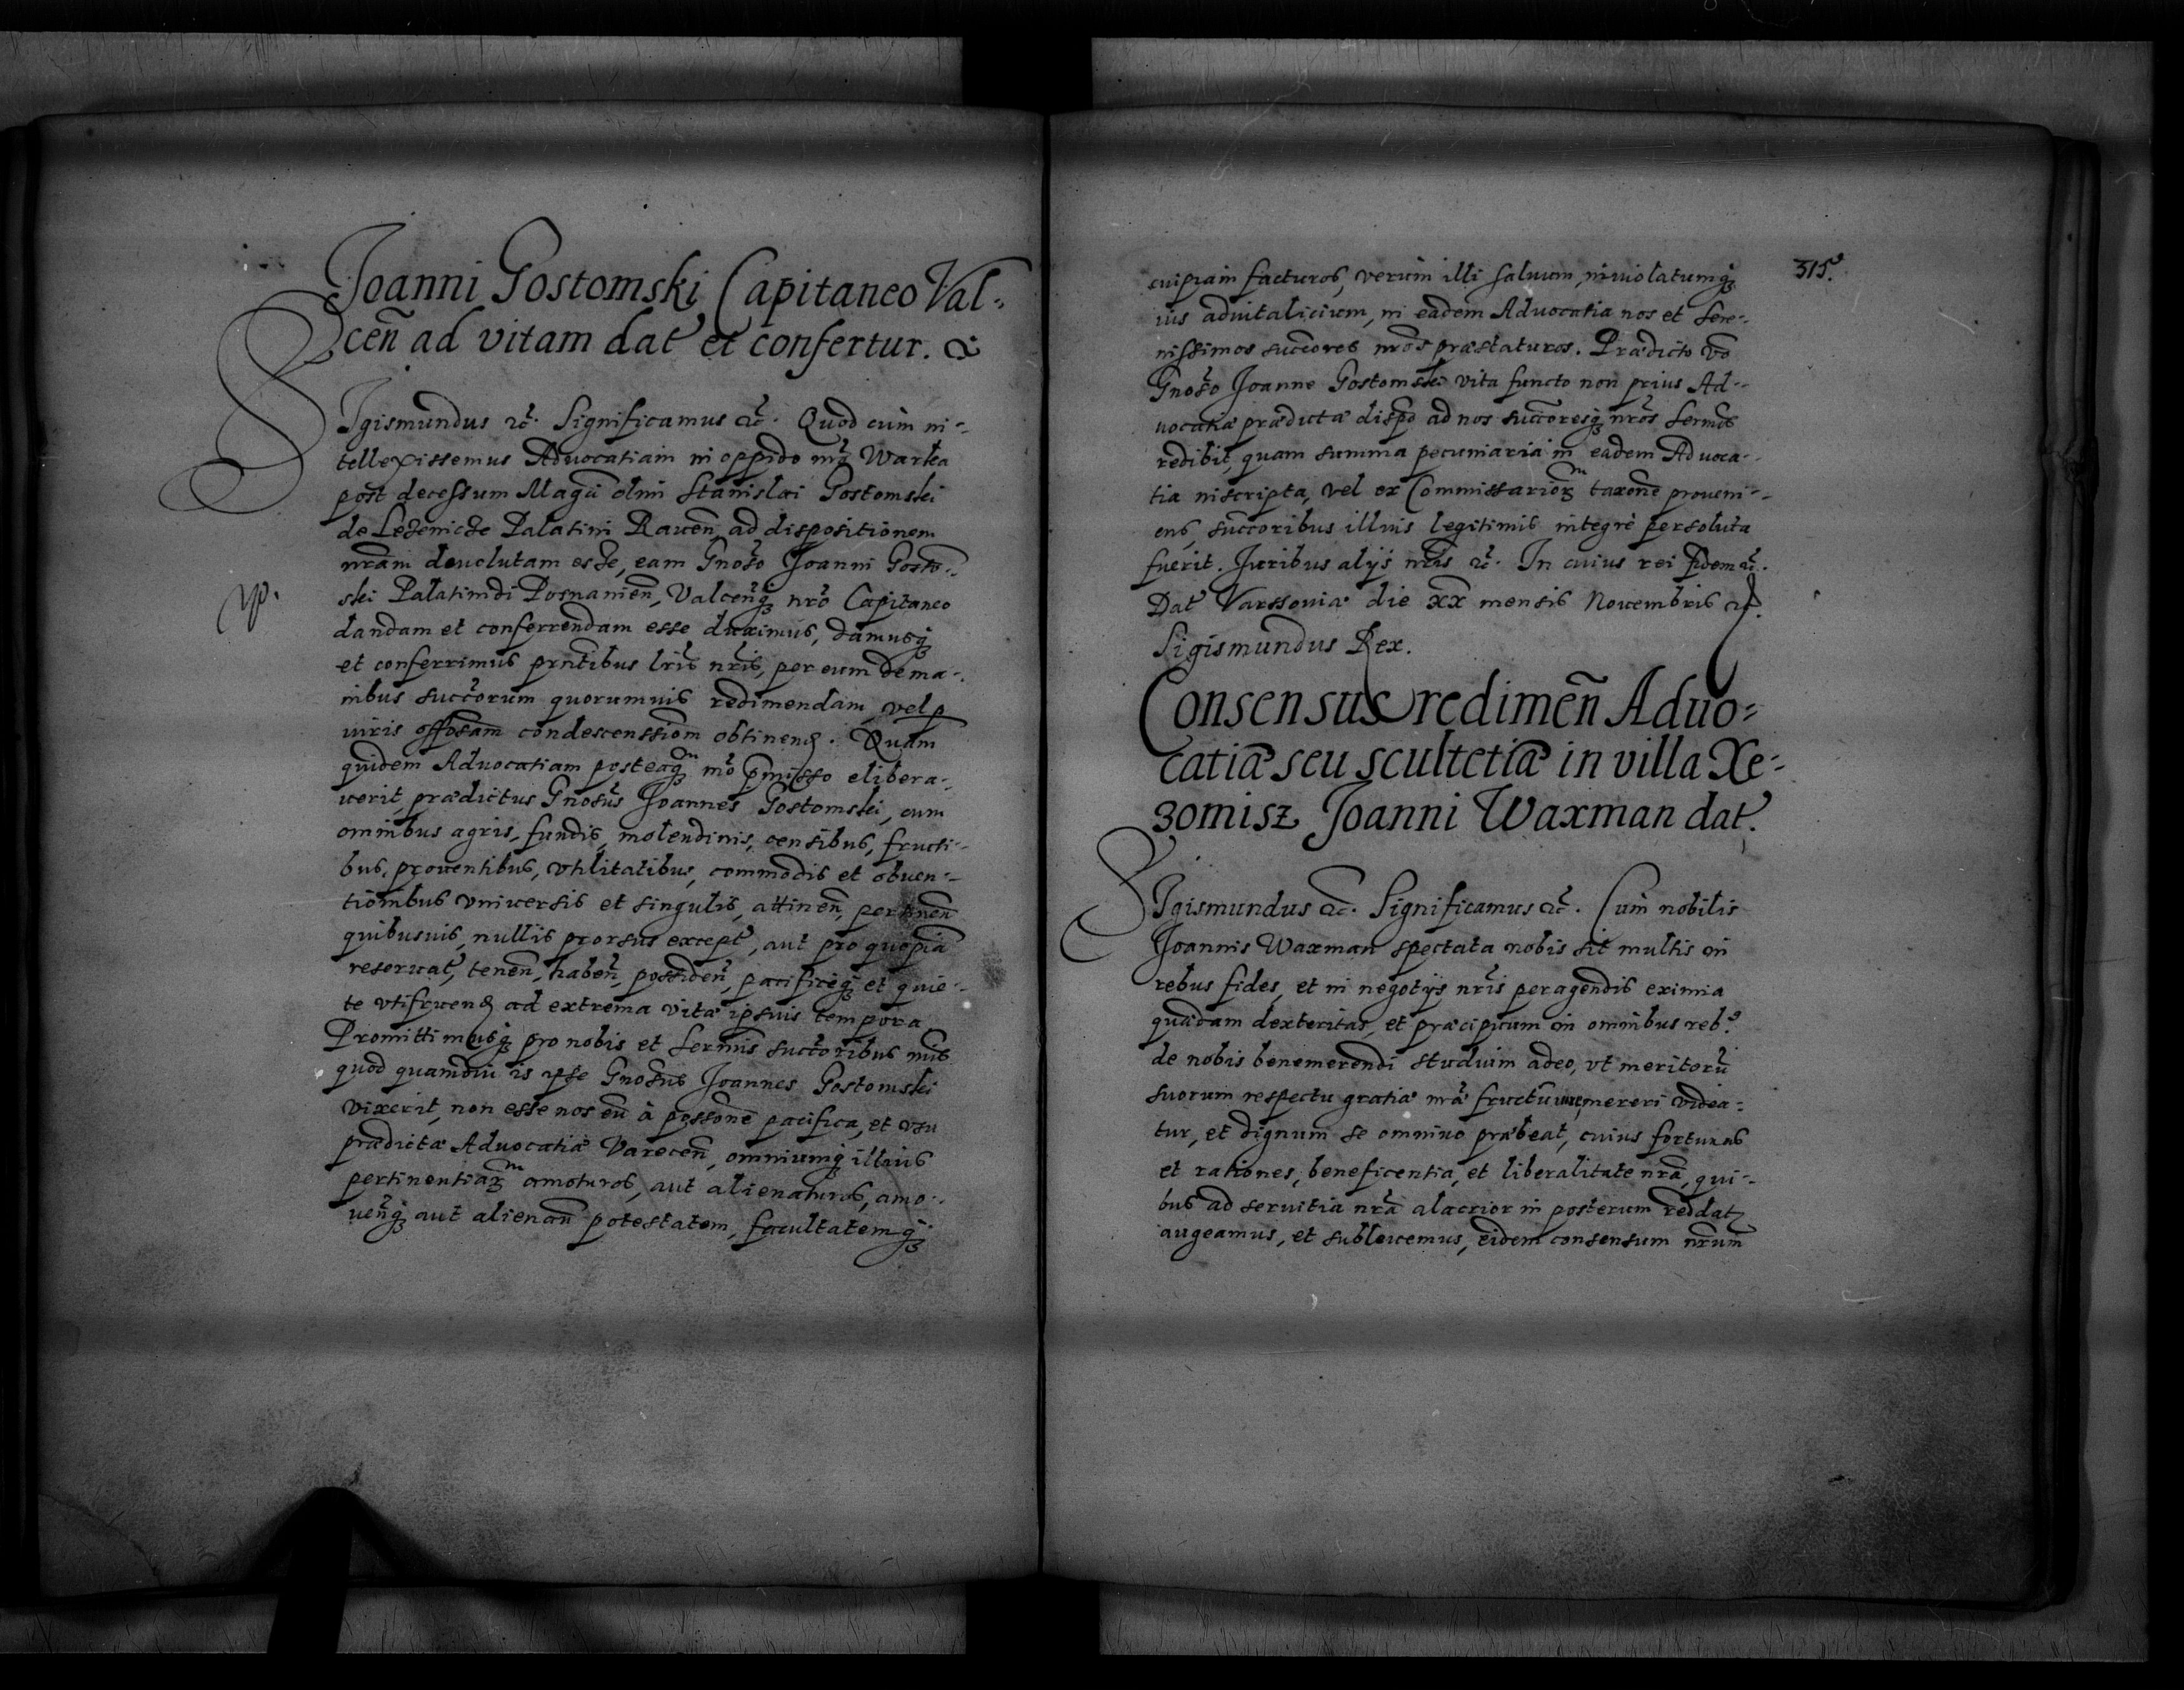 Joanni Gostomski Capitaneo Val-
cen̄ ad vitam dat et confertur. &
Sigismundus &c. Significamus &c. Quod cum in-
tellexissemus Advocatiam in oppido nrō Warka
post decessum Magci olim Stanislai Gostomski
de Lezenicze Palatini Raven̄ ad dispositionem
nrām devolutam esse, eam Gnoso Joanni Gosto-
ski Palatinidi Posnanien̄, Valcen̄q nrō Capitaneo
dandam et conferrendam esse duximus, damusq
et conferrimus prntibus lris nris, per eum de ma-
nibus succorum quorumvis redimendam vel p
viris condescenssiom obtinend. Quam
quidem Advocatiam posteaqm mo pmisso elibera-
verit prædictus Gnosus Joannes Gostomski, cum
omnibus agris, fundis, molendinis, censibus, fructi-
bus, proventibus, vtilitatibus, commodis et obven-
tionibus vniversis et singulis, attinen̄, pertinen̄
quibusvis, nullis prorsus except, aut pro quopiā
reservat, tenen̄, haben̄, possiden̄, pacificeq et quie-
te vtifruend ad extrema vitæ ipsius tempora
Promittimusq pro nobis et Sermis succoribus nris
quod quamdiu is ipse Gnosus Joannes Gostomski
vixerit, non esse nos eū à possone pacifica, et vsu
prædictæ Advocatiæ Varecen̄, omniumq illius
pertinentiarm amoturos, aut alienaturos, amo-
venq aut alienan̄ potestatem, facultatemq
315.
cuipiam facturos, verum illi salvum, inviolatumq
ius advitalicium, in eadem Advocatia nos et Sere-
nissimos succores nros præstaturos. Prædicto vō
Gnoso Joanne Gostomski vita functo non prius Ad-
vocatia prædicta dispo ad nos succoresq nros Sermos
redibit, quam summa pecuniaria in eadem Advoca-
tia inscripta, vel ex Commissariorm taxone proveni-
ens, succoribus illius legitimis integrè persoluta
fuerit. Juribus alijs nris &c. In cuius rei fidem &c.
Dat Varssoviæ die XX mensis Novembris &c.
Sigismundus Rex.
Consensus redimen̄ Aduo-
catiā seu scultetiā in villa Xe-
zomisz Joanni Waxman dat.
Sigismundus &c. Significamus &c. Cum nobilis
Joannis Waxman spectata nobis sit multis in
rebus fides, et in negotijs nris peragendis eximia
quædam dexteritas, et præcipuum in omnibus reb9
de nobis benemerendi studium adeo, vt meritorū
suorum respectu gratiæ nræ fructum mereri videa-
tur, et dignum se omnino præbeat, cuius fortunas
et rationes, beneficentia, et liberalitate nrā, qui-
bus ad servitia nrā alacrior in posterum reddat
augeamus, et sublevemus, eidem consensum nrum